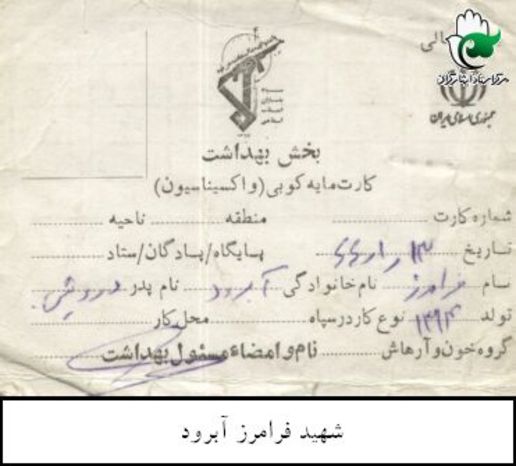 مرکز اسناد ایثارگران
جمهوری اسلامی ایران
بخش بهداشت
کارت مایه کوبی (واکسیناسیون)
شماره کارت منطقه ناحیه
تاریخ پایگاه/پادگان/ستاد
نام فرامرز نام خانوادگی آبرود نام پدر درویش
تولد نوع کار در سپاه محل کار
گروه خون و آرهاش نام و امضاء مسئول بهداشت
شهید فرامرز آبرود